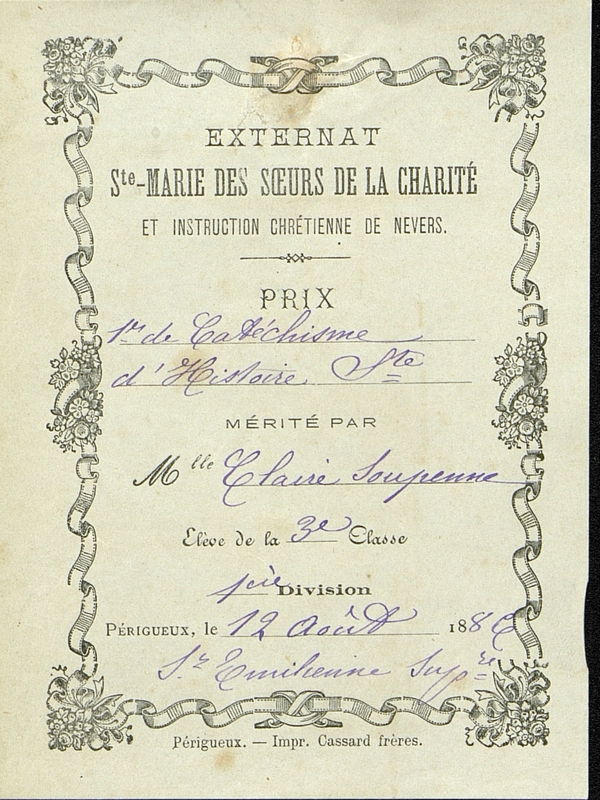 EXTERNAT
Ste-MARIE DES SŒURS DE LA CHARITÉ
ET INSTRUCTION CHRÉTIENNE DE NEVERS.
PRIX
1er de Catéchisme
d'Histoire Ste
MÉRITÉ PAR
Mlle Claire Soupenne
Elève de la 3e Classe
1ère Division
PÉRIGUEUX, le 12 août 1886
Sr Emilienne Supre
Périgueux. — Impr. Cassard frères.